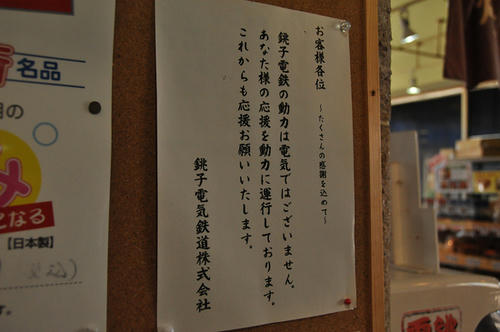 お客様各位 ～たくさんの感謝を込めて～
銚子電鉄の動力は電気ではございません。
あなた様の応援を動力に運行しております。
これからも応援お願いいたします。
銚子電気鉄道株式会社
名品
の
メ
になる
【日本製】
す。